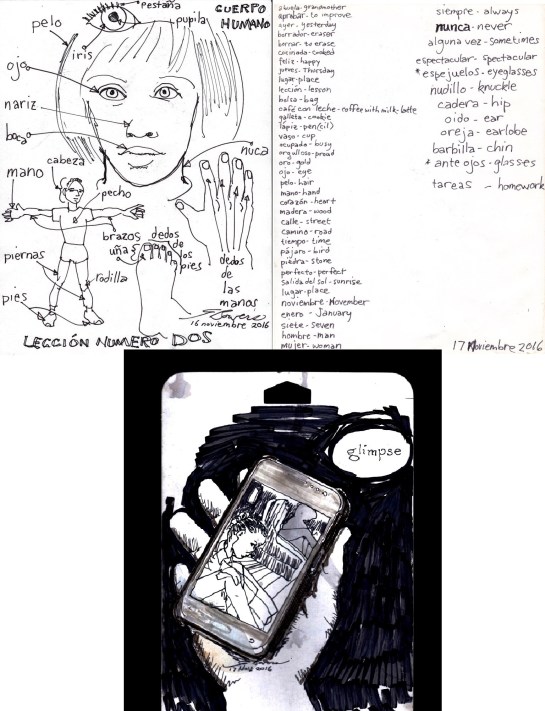 pestaña
CUERPO
HUMANO
pupila
pelo
iris
ojo
nariz
boca
nuca
cabeza
mano
pecho
brazos
uña
dedos
de
los
pies
piernas
rodilla
pies
dedos
de
las
manos
16 noviembre 2016
LECCIÓN NUMERO DOS
abuela-grandmother
aprobar-to improve
ayer-yesterday
borrador-eraser
borrar-to erase
cocinada-cooked
feliz-happy
jueves-Thursday
lugar-place
lección-lesson
bolsa-bag
café con leche-coffee with milk-latte
galleta-cookie
lápiz-pen(cil)
vaso-cup
ocupada-busy
orgulloso-proud
oro-gold
ojo-eye
pelo-hair
mano-hand
corazón-heart
madera-wood
calle-street
camino-road
tiempo-time
pájaro-bird
piedra-stone
perfecto-perfect
salida del sol-sunrise
lugar-place
noviembre-November
enero-January
siete-seven
hombre-man
mujer-woman
siempre-always
nunca-never
alguna vez-sometimes
espectacular-spectacular
*espejuelos-eyeglasses
nudillo-knuckle
cadera-hip
oido-ear
oreja-earlobe
barbilla-chin
*ante ojos-glasses
tareas - homework
17 Noviembre 2016
glimpse